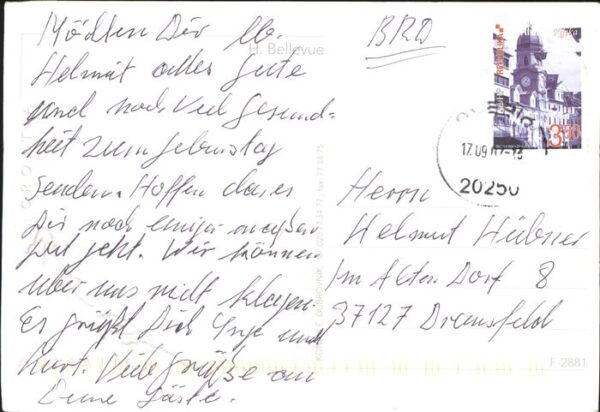 Möchten Dir lb.
Helmut alles Gute
und noch viel Gesund-
heit zum Geburtstag
senden. Hoffen dass es
Dir noch einigermaßen
gut geht. Wir können
über uns nicht klagen.
Es grüßt Dich Inge und
Kurt. Viele Grüße an
Deine Gäste.
H. Bellevue
BRD
Rijeka
3,50
17.09.07-13
20250
Herrn
Helmut Hübner
Im Alten Dorf 8
37127 Dransfeld
DUBROVNIK
F-2881